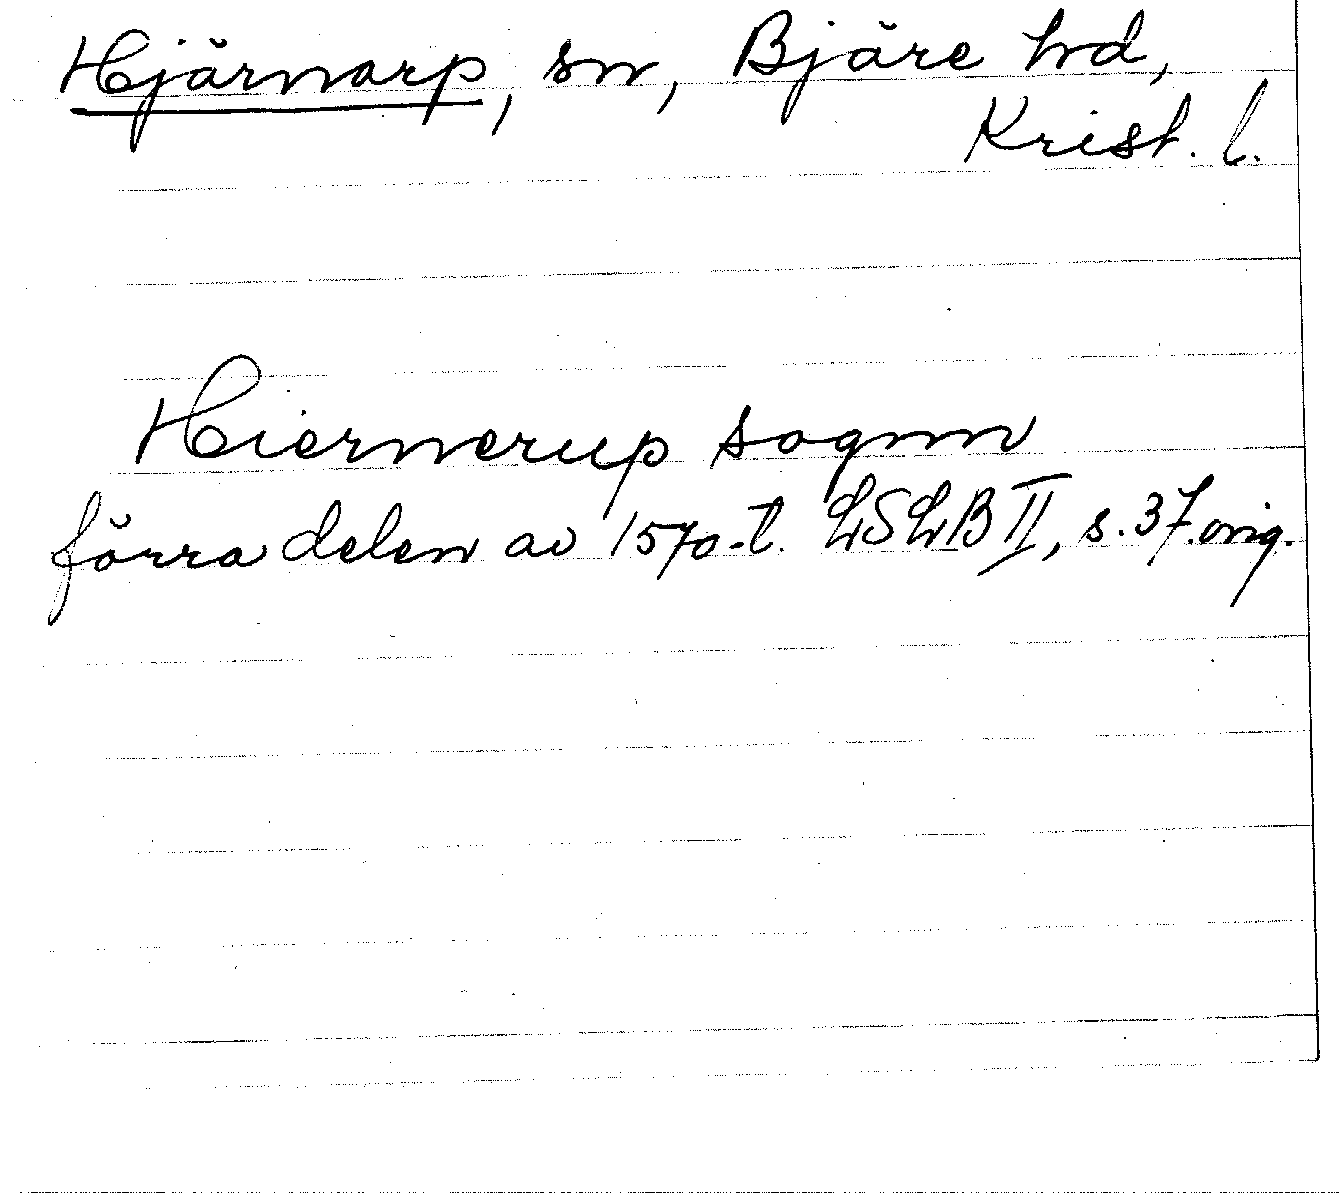 Hjärnarp, sn, Bjäre hd,
Krist. l.
Hiernerup sognn
förra delen av 1570-t. LSLB II, s. 37. orig.